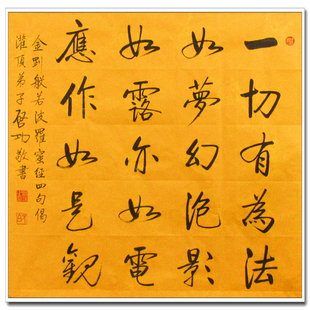 一切有為法
如夢幻泡影
如露亦如電
應作如是觀
金剛般若波羅蜜經四句偈
灌頂弟子啓功敬書